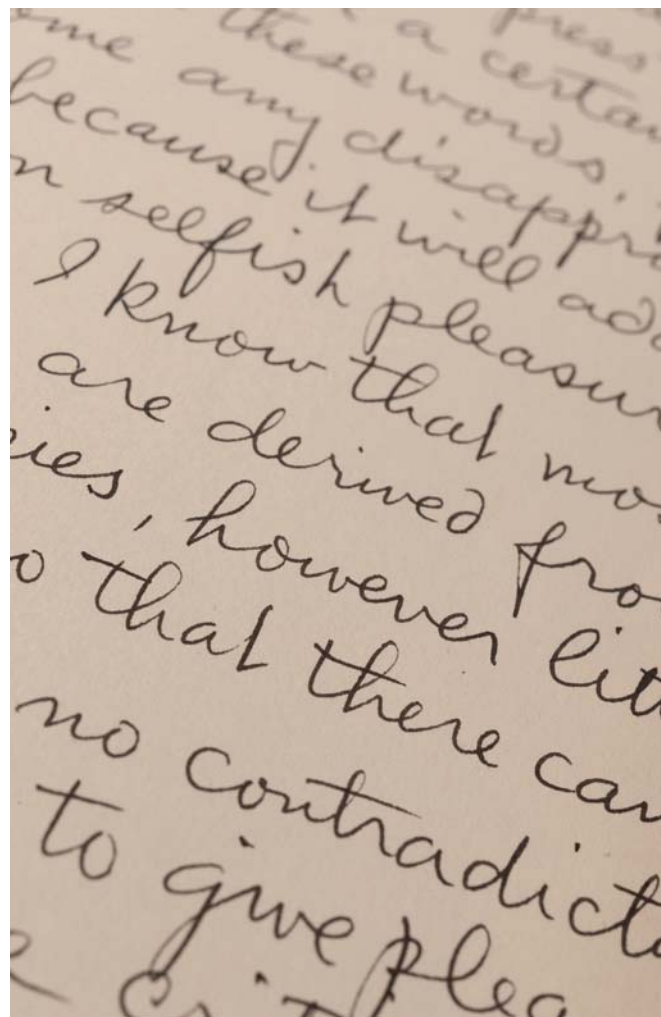 press
a certain
ome these words.
any disappro
because it will add
n selfish pleasur
I know that mos
are derived fro
ies, however litt
o that there can
no contradict
to give plea
crit